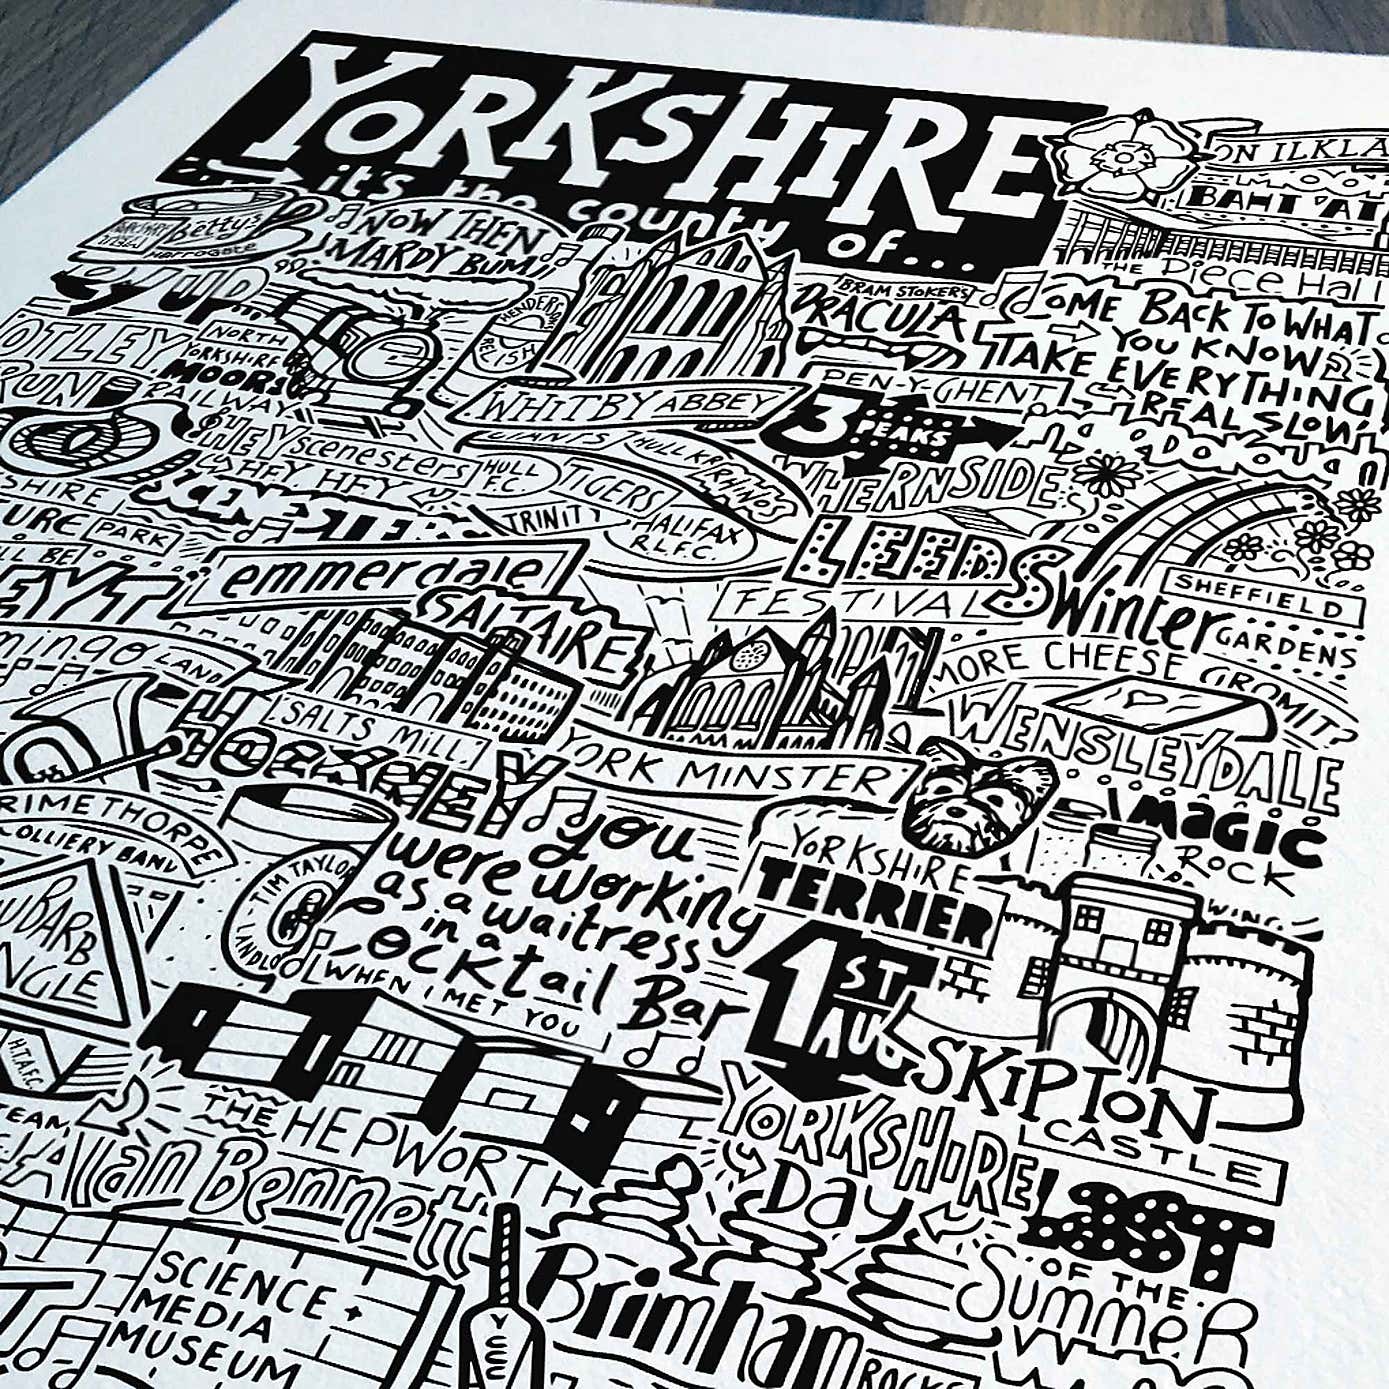 YORKSHIRE
it's the county of...
ON ILKLA
BAHT 'AT
THE Piece Hall
YORKSHIRE
Bettys
HARROGATE
NOW THEN
MARDY BUM
HENDERSON
RELISH
BRAM STOKER'S
DRACULA
COME BACK TO WHAT
YOU KNOW
TAKE EVERYTHING
REAL SLOW
OTLEY
RUN
NORTH
YORKSHIRE
MOORS
RAILWAY
WHITBY ABBEY
PEN-Y-GHENT
3 PEAKS
WHERNSIDE
HEY scenesters
HEY, HEY
SCENESTERS
GIANTS
HULL KR
RHINOS
HULL
F.C.
TIGERS
TRINITY
HALIFAX
R.L.F.C.
SHIRE
PARK
LL BE
LEEDS
FESTIVAL
SHEFFIELD
Winter
GARDENS
emmerdale
SALTAIRE
MINGO LAND
SALTS MILL
HOCKNEY
YORK MINSTER
MORE CHEESE GROMIT?
WENSLEYDALE
MAGIC
ROCK
RIMETHORPE
OLLIERY BAND
TIM TAYLOR
LANDLO
you
were working
as a waitress
in a
Cocktail Bar
WHEN I MET YOU
YORKSHIRE
TERRIER
HUBARB
NGLE
1ST
AUG
YORKSHIRE
Day
SKIPTON
CASTLE
H.T.A.F.C.
TEAM
THE HEPWORTH
Alan Bennett
LAST
OF THE
SummeR
SCIENCE +
MEDIA
MUSEUM
Brimham
ROCKS